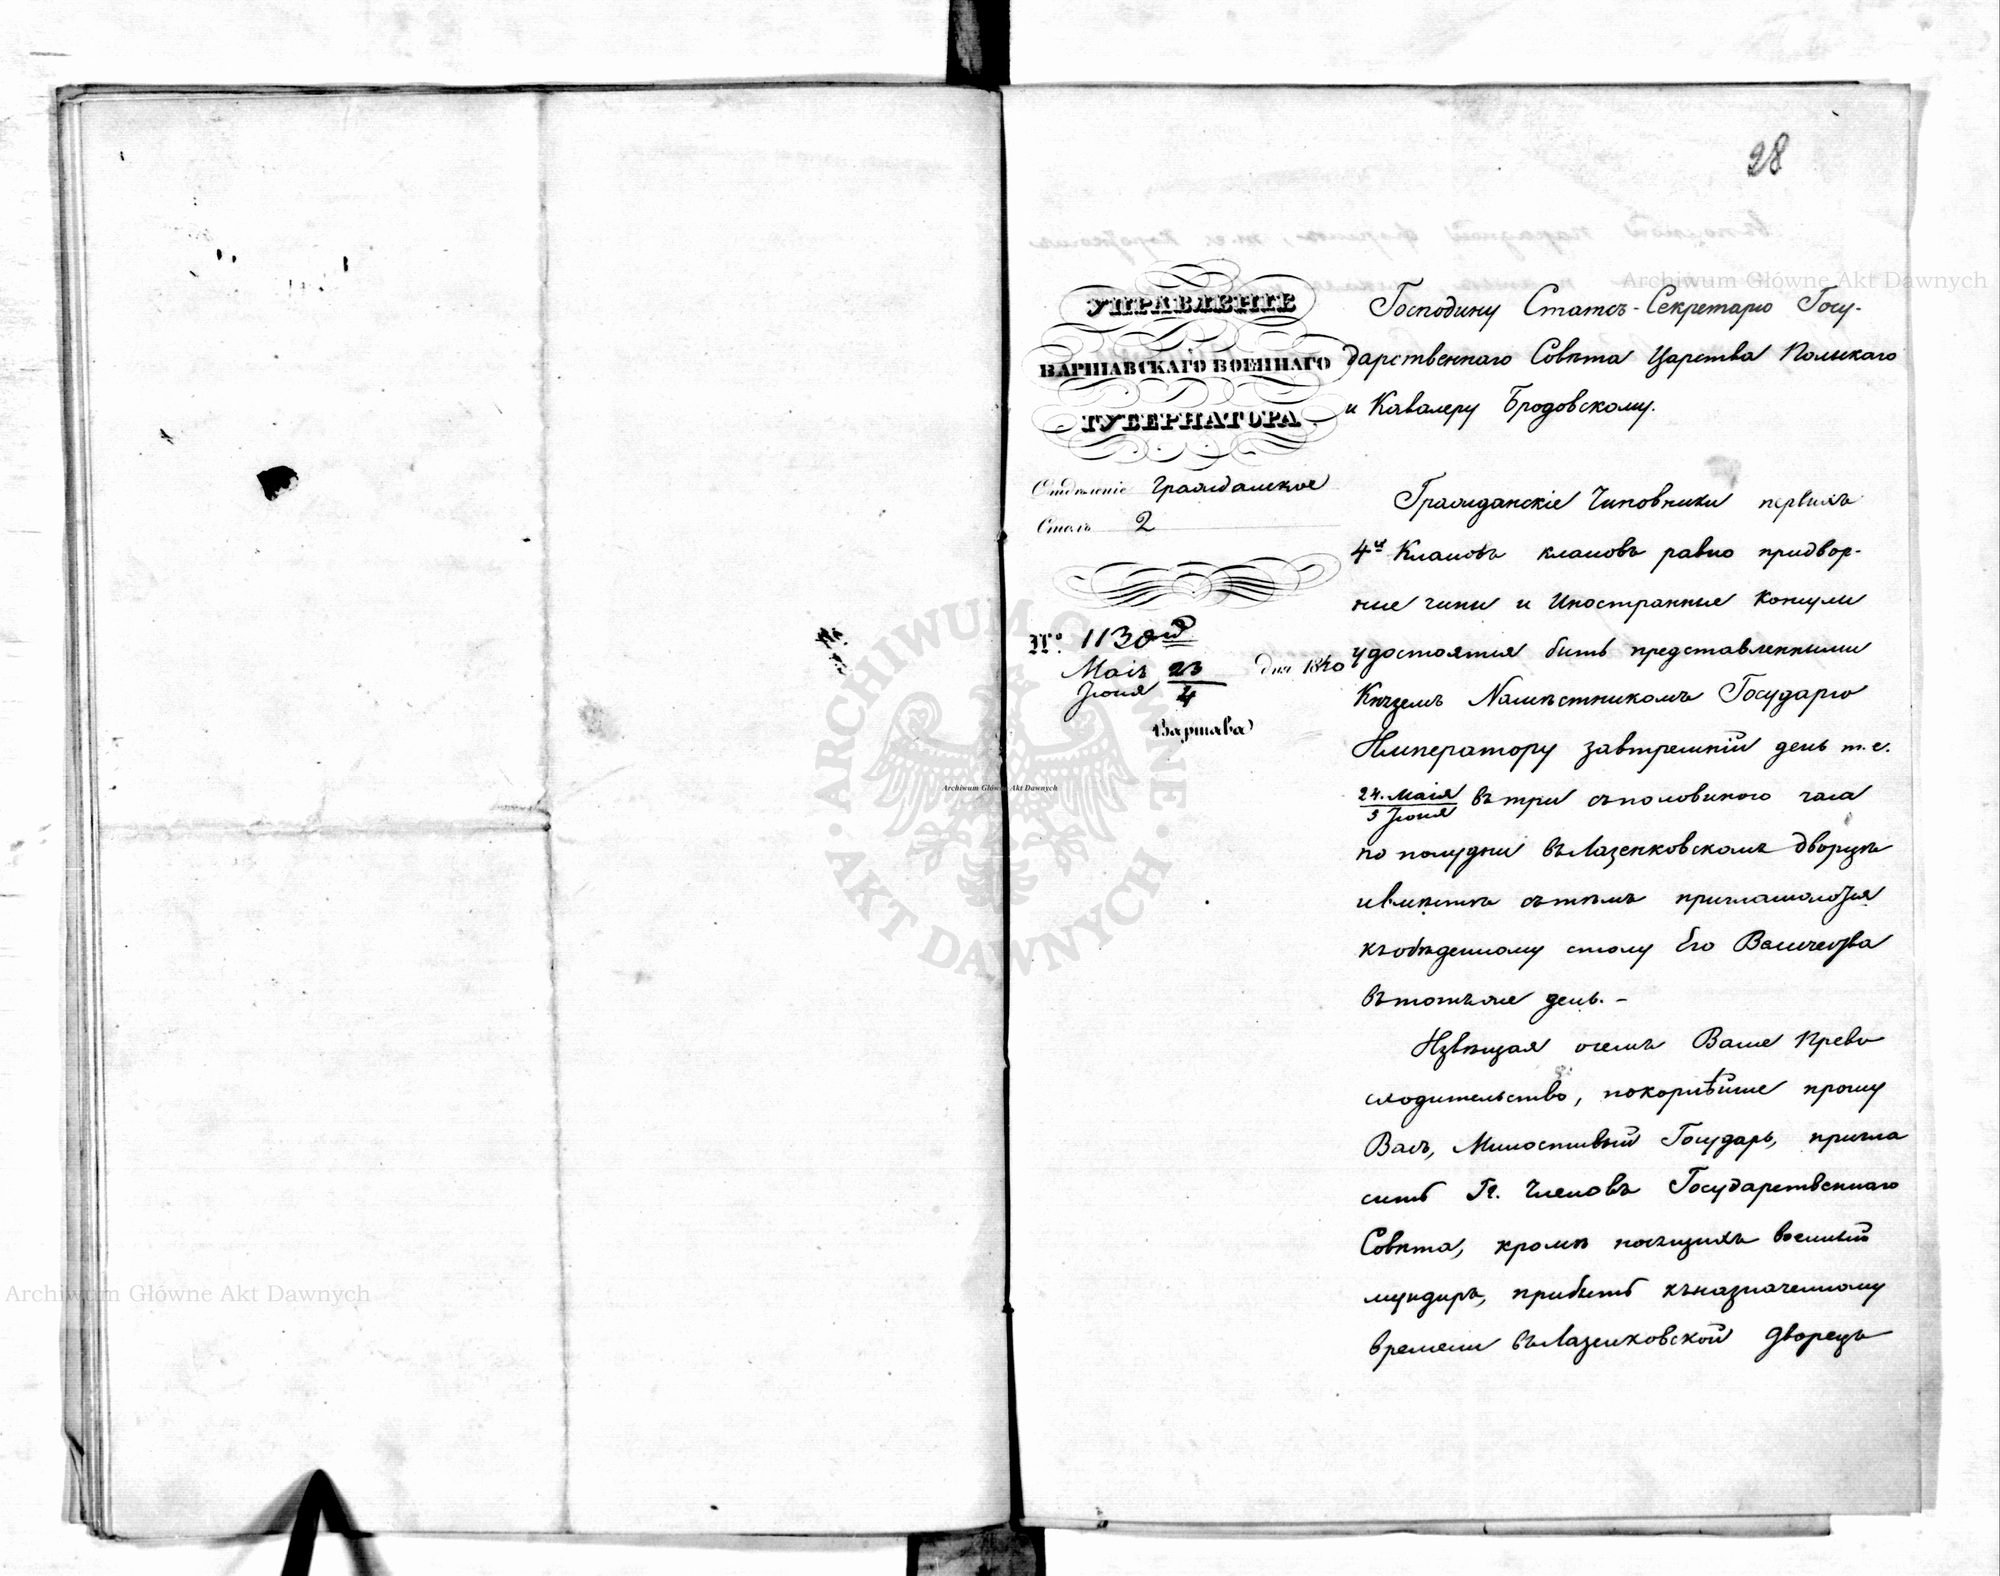 28
УПРАВЛЕНІЕ
ВАРШАВСКАГО ВОЕННАГО
ГУБЕРНАТОРА
Отдѣленіе Гражданское
Столъ 2
№. 113
Маія 23
Іюня 4
дня 1840
Варшава
Господину Статсъ-Секретарю Госу-
дарственнаго Совѣта Царства Польскаго
и Кавалеру Бродовскому.
Гражданскіе Чиновники первыхъ
4хъ Классовъ классовъ равно придвор-
ные чины и Иностранные Консулы
удостоятся быть представленными
Княземъ Намѣстникомъ Государю
Императору завтрешній день т.е.
24. Маія
5 Іюня
въ три съ половиною часа
по полудни въ Лазенковскомъ дворцѣ
и вмѣстѣ съ тѣмъ приглашаются
къ обѣденному столу Его Величества
въ тотъ же день. -
Извѣщая о семъ Ваше Прево
сходительство, покорнѣйше прошу
Васъ, Милостивый Государь, пригла
сить Гг. Членовъ Государственнаго
Совѣта, кромѣ носящихъ военный
мундиръ, прибыть къ назначенному
времени въ Лазенковской дворецъ
Archiwum Główne Akt Dawnych
Archiwum Główne Akt Dawnych
Archiwum Główne Akt Dawnych
ARCHIWUM GŁÓWNE AKT DAWNYCH